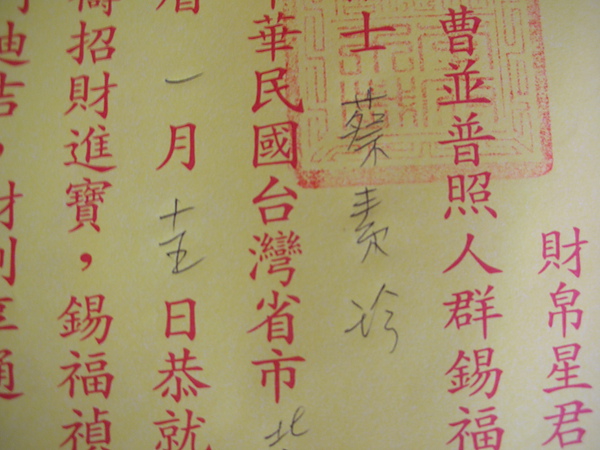 財帛星君
曹並普照人群錫福
士蔡珍
華民國台灣省市北
一月十五日恭就
禱招財進寶，錫福禎
迪吉，財利亨通